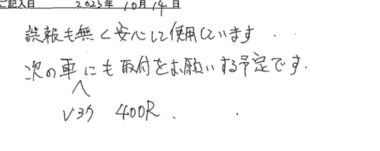 ご記入日 2023年 10月 14日
誤報も無く安心して使用しています.
次の車にも取付をお願いする予定です.
V37 400R.